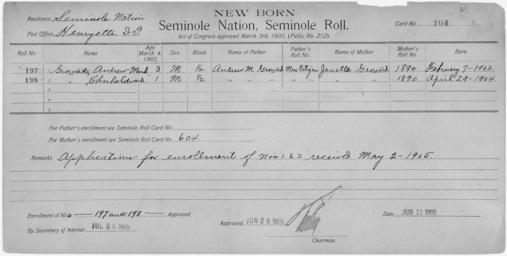 NEW BORN
Residence Seminole Nation
Seminole Nation, Seminole Roll.
Card No. 164
Post Office Henryetta I.T.
Act of Congress approved March 3rd, 1905, (Public No. 212).
Roll No. Name Age March 4, 1905. Sex. Blood. Name of Father Father's Roll No. Name of Mother Mother's Roll No. Born
197 Andrew Mack 3 M Andrew M. Non Citizen Janetta 1890 February 7-1902
198 " 1 M " " " " " " " 1890 April 29-1904
For Father's enrollment see Seminole Roll Card No.
For Mother's enrollment see Seminole Roll Card No. 604.
Remarks Application for enrollment of Nos 1 & 2 received May 2-1905.
Enrollment of Nos 197 and 198 Approved
Approved JUN 28 1905
Date JUN 21 1905
By Secretary of Interior 1905
Chairman.